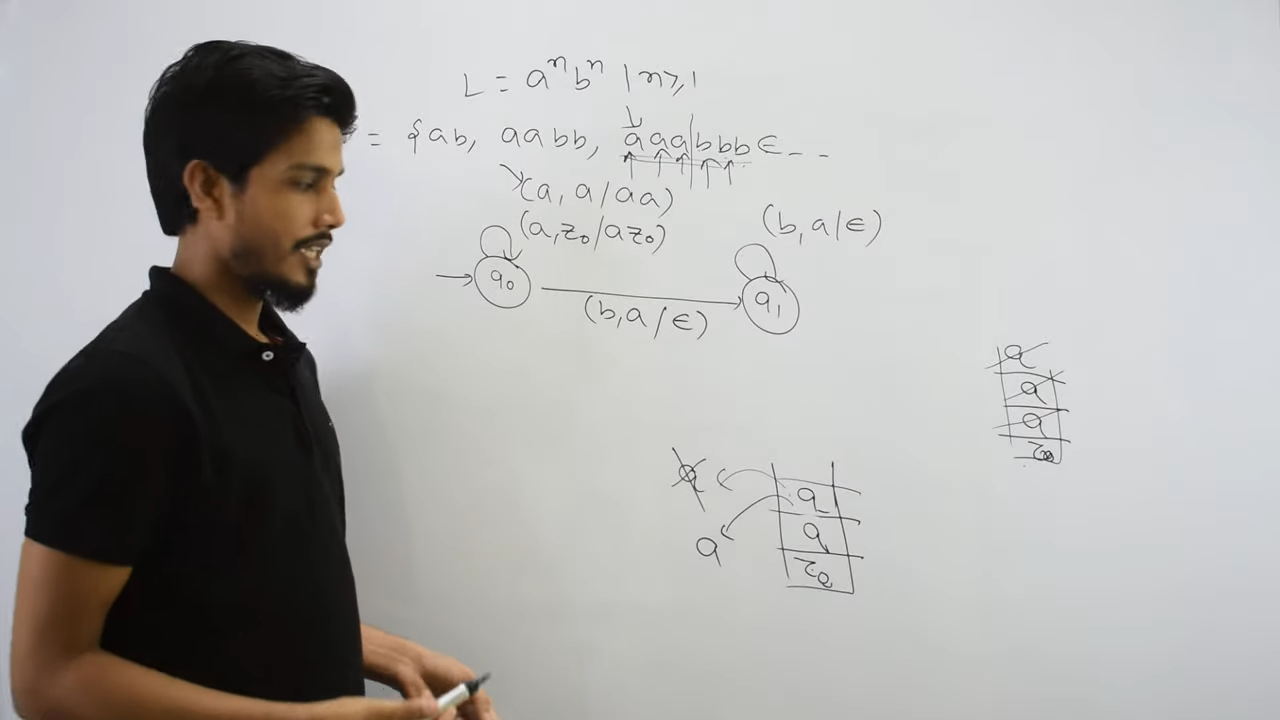 L = aⁿbⁿ | n≥1
= {ab, aabb, aaa|bbb ϵ - -
(a, a/aa)
(a, z₀/az₀)
(b, a/ϵ)
q₀
q₁
(b, a/ϵ)
a
a
a
z₀
a
a
a
a
z₀